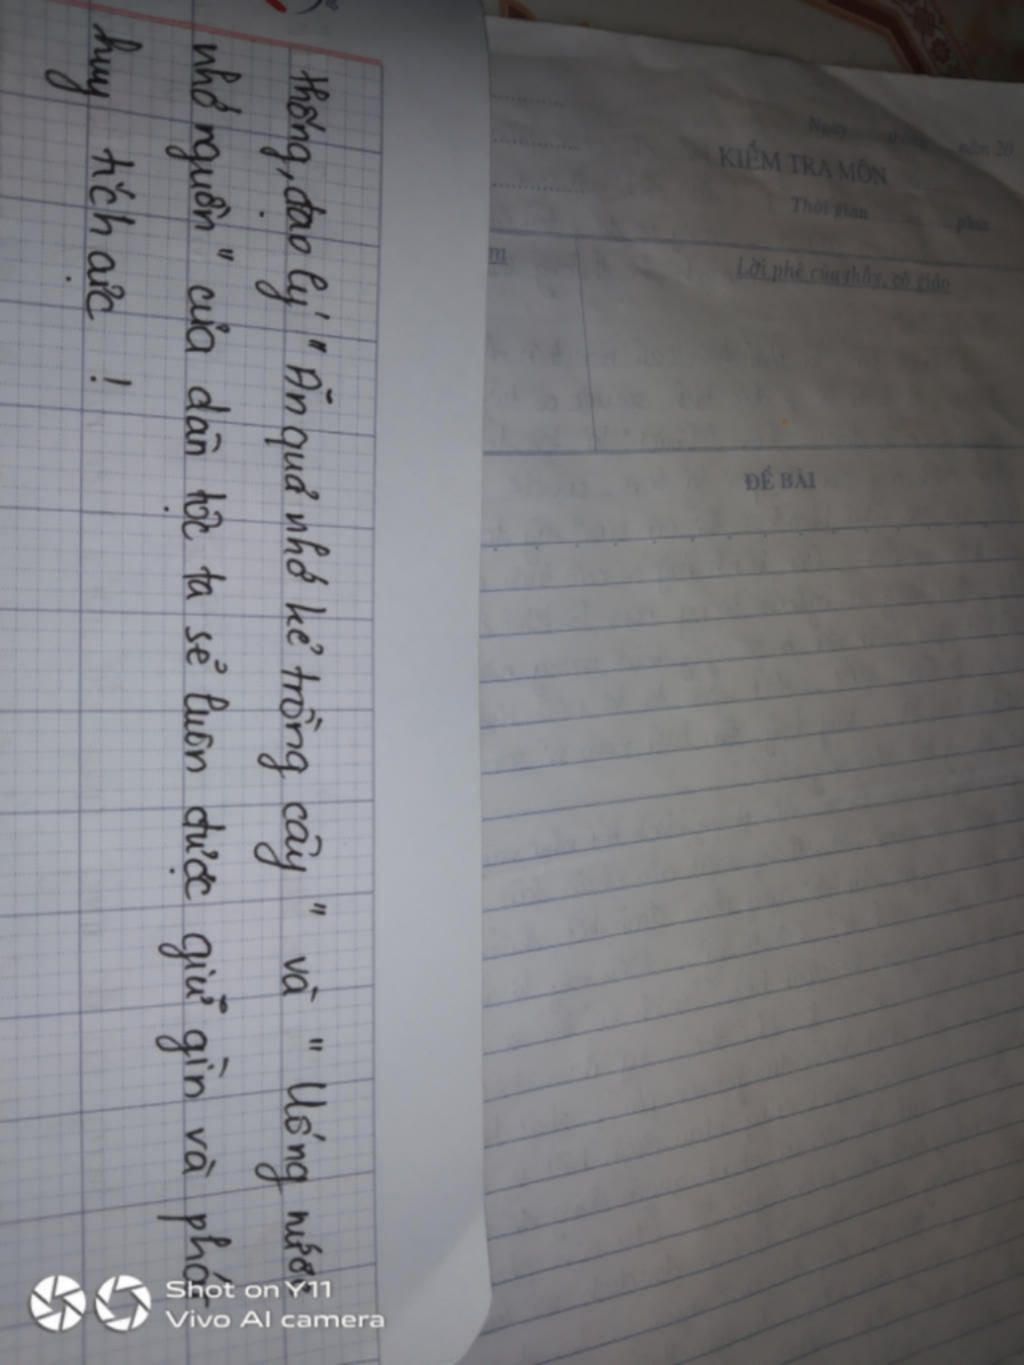 thống, đạo lý " Ăn quả nhớ kẻ trồng cây " và " Uống nước
nhớ nguồn " của dân tộc ta sẻ luôn được giữ gìn và phát
huy tích cực !
Ngày tháng năm 20
KIỂM TRA MÔN
Thời gian phút
m
Lời phê của thầy, cô giáo
ĐỀ BÀI
Shot on Y11
Vivo AI camera